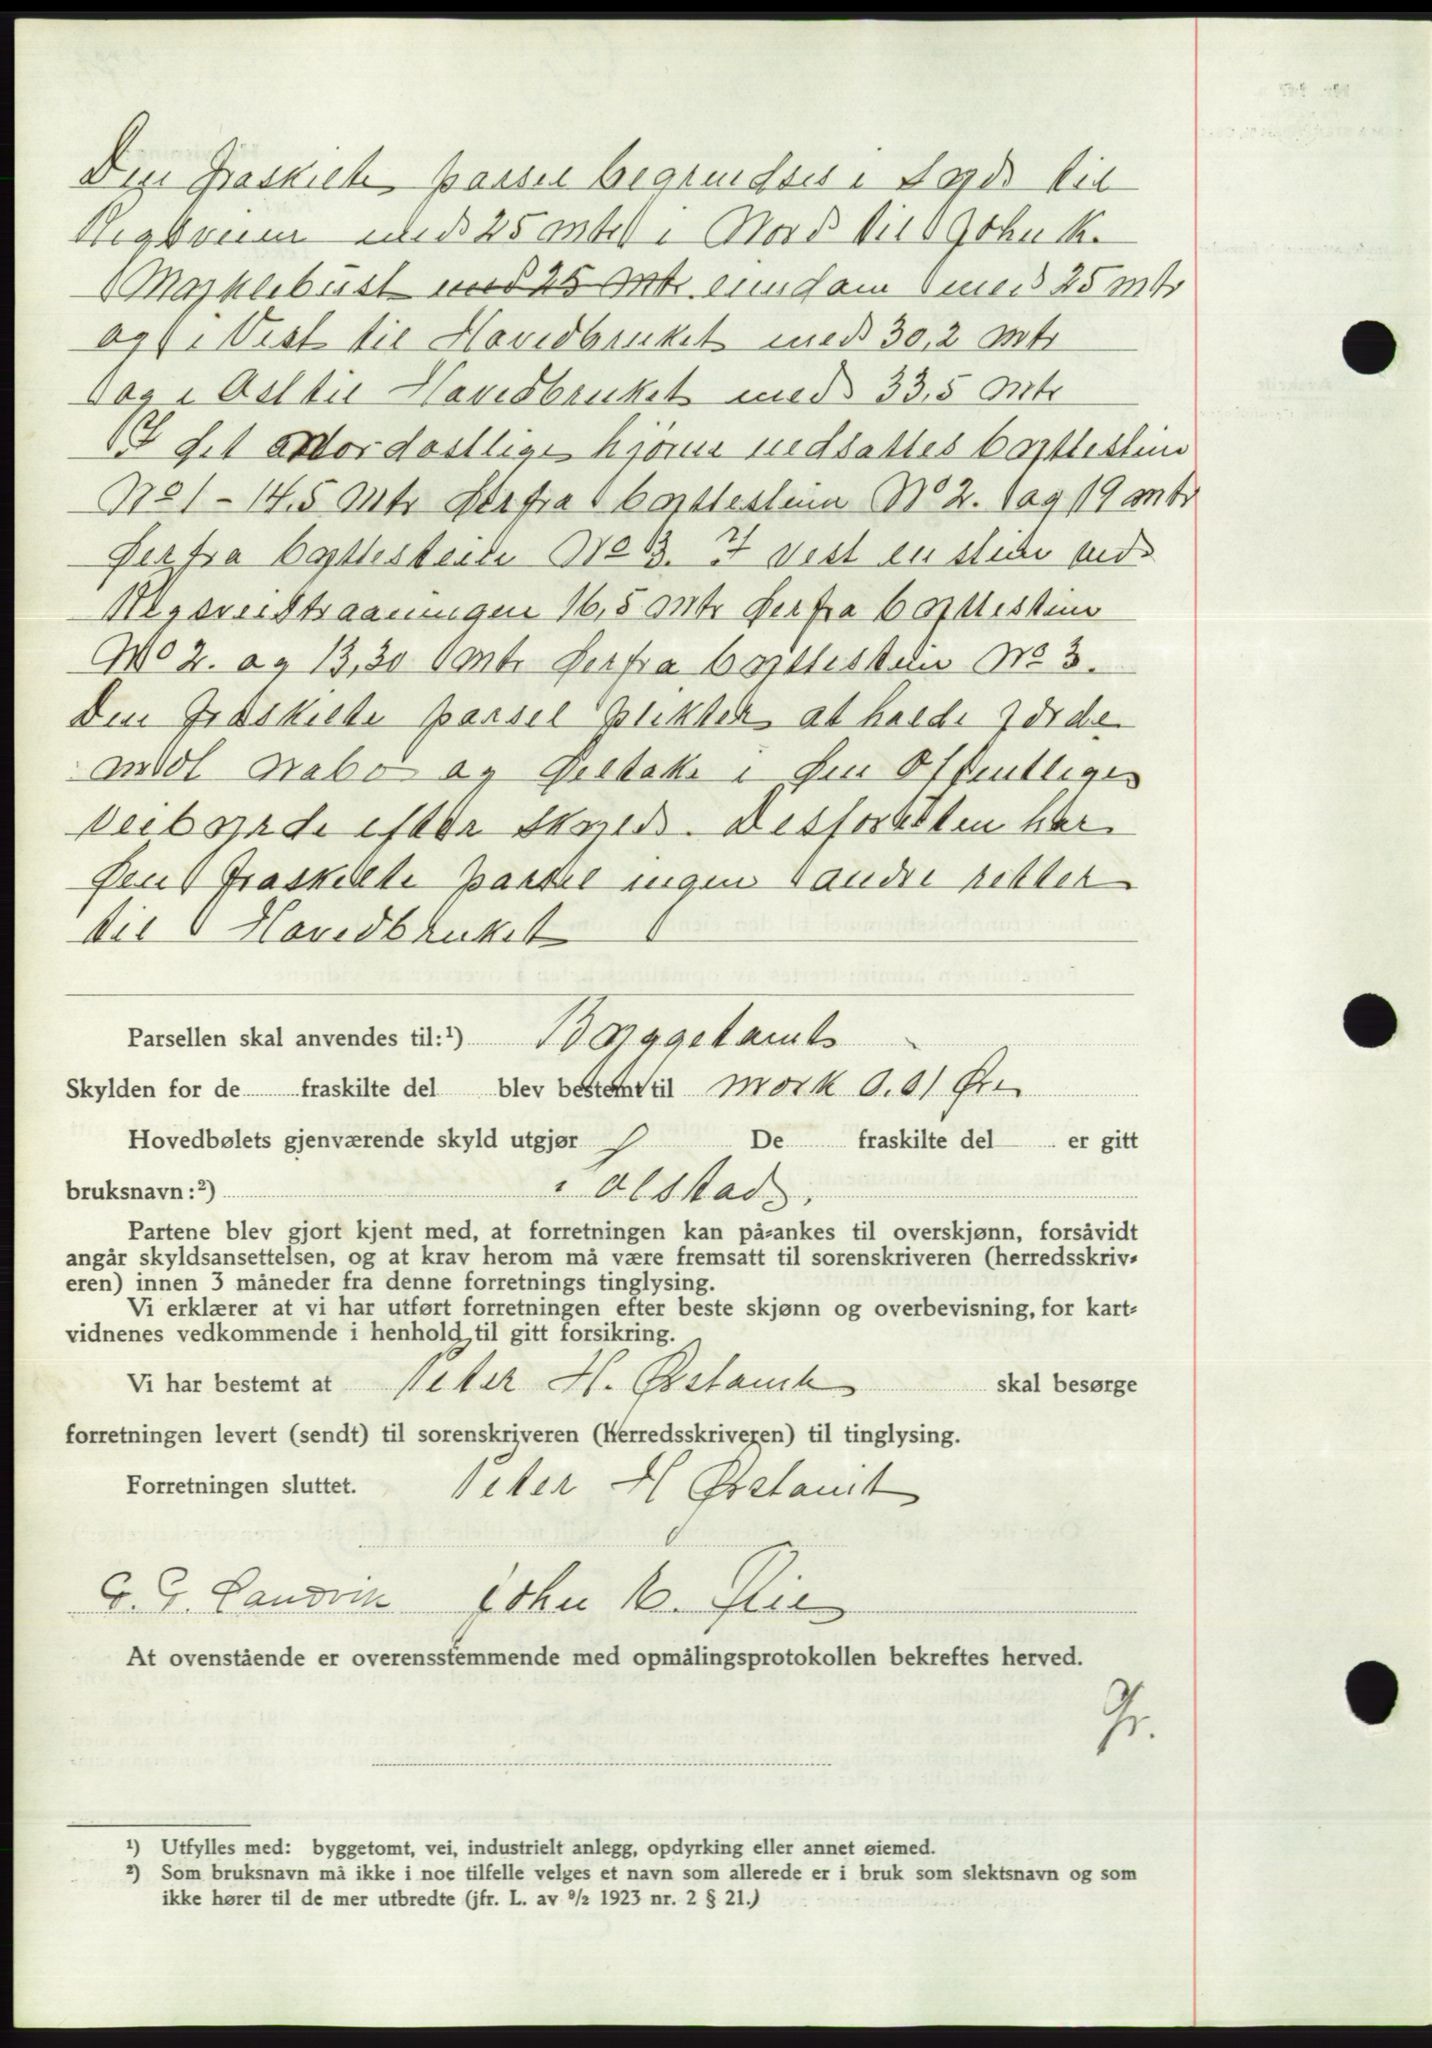 Den fraskilte parsel begrendses i Syd til
Rigsveien med 25 mtr i Nord til John K.
Myklebust med 25 mtr. eiendom med 25 mtr
og i Vest til Hovedbruket med 30,2 mtr
og i Ost til Hovedbruket med 33,5 mtr
I det Nordostlige hjörne nedsattes byttestein
No 1 - 14,5 mtr derfra byttestein No 2. og 19 mtr
derfra byttestein No 3. I vest en stein ved
Rigsvei 16,5 mtr derfra byttestein
No 2. og 13,30 mtr derfra byttestein No 3.
Den fraskilte parsel plikter at holde jorde
mot Nabo og deltake i den Offentlige
veibyrde efter Skyld. Desforuten har
den fraskilte parsel ingen andre retter
til Hovedbruket
Parsellen skal anvendes til:¹) Byggetomt
Skylden for de fraskilte del blev bestemt til mork 0.01 Øre
Hovedbølets gjenværende skyld utgjør De fraskilte del er gitt
bruksnavn:²) Solstad.
Partene blev gjort kjent med, at forretningen kan på-ankes til overskjønn, forsåvidt
angår skyldsansettelsen, og at krav herom må være fremsatt til sorenskriveren (herredsskriv-
eren) innen 3 måneder fra denne forretnings tinglysing.
Vi erklærer at vi har utført forretningen efter beste skjønn og overbevisning, for kart-
vidnenes vedkommende i henhold til gitt forsikring.
Vi har bestemt at Peter H. Ørstavik skal besørge
forretningen levert (sendt) til sorenskriveren (herredsskriveren) til tinglysing.
Forretningen sluttet. Peter H Ørstavik
G. G. Sandvik John E. Flie
At ovenstående er overensstemmende med opmålingsprotokollen bekreftes herved.
Gr.
¹) Utfylles med: byggetomt, vei, industrielt anlegg, opdyrking eller annet øiemed.
²) Som bruksnavn må ikke i noe tilfelle velges et navn som allerede er i bruk som slektsnavn og som
ikke hører til de mer utbredte (jfr. L. av ⁹/₂ 1923 nr. 2 § 21.)